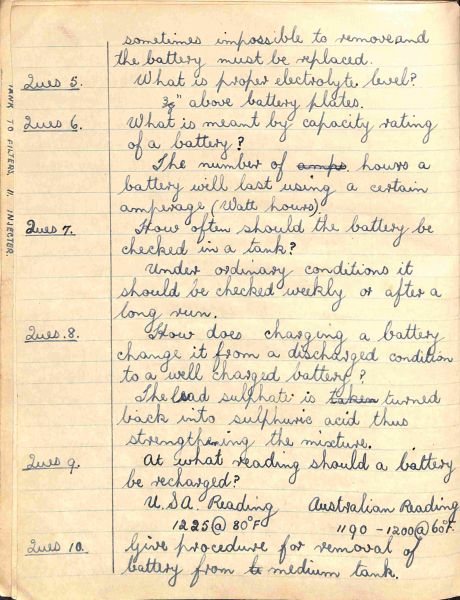 sometimes impossible to remove and
the battery must be replaced.
Ques 5. What is proper electrolyte level?
3/8" above battery plates.
Ques 6. What is meant by capacity rating
of a battery?
The number of amps hours a
battery will last using a certain
amperage (Watt hours).
Ques 7. How often should the battery be
checked in a tank?
Under ordinary conditions it
should be checked weekly or after a
long run.
Ques. 8. How does charging a battery
change it from a discharged condition
to a well charged battery?
The lead sulphate is taken turned
back into sulphuric acid thus
strengthening the mixture.
Ques 9. At what reading should a battery
be recharged?
U.S.A. Reading Australian Reading
1225 @ 80°F 1190 - 1200 @ 60°F.
Ques 10. Give procedure for removal of
battery from medium tank.
TANK TO FILTERS. 11. INJECTER.